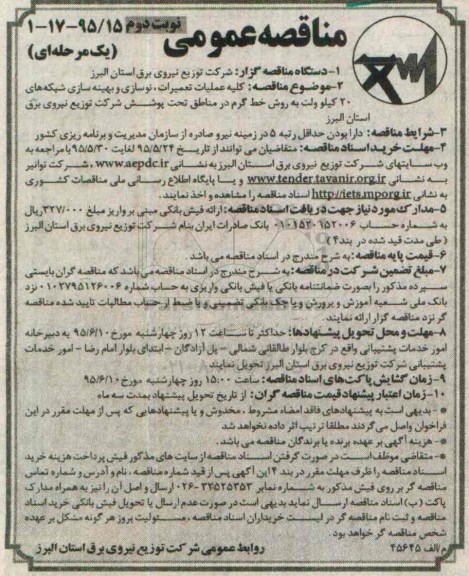 مناقصه عمومی
نوبت دوم ۹۵/۱۵-۱۷-۱
(یک مرحله‌ای)
۱-دستگاه مناقصه گزار: شرکت توزیع نیروی برق استان البرز
۲-موضوع مناقصه: کلیه عملیات تعمیرات، نوسازی و بهینه سازی شبکه‌های
۲۰ کیلو ولت به روش خط گرم در مناطق تحت پوشش شرکت توزیع نیروی برق
استان البرز
۳-شرایط مناقصه: دارا بودن حداقل رتبه ۵ در زمینه نیرو صادره از سازمان مدیریت و برنامه ریزی کشور
۴-مهلت خرید اسناد مناقصه: متقاضیان می توانند از تاریخ ۹۵/۵/۲۴ لغایت ۹۵/۵/۳۰ با مراجعه به
وب سایتهای شرکت توزیع نیروی برق استان البرز به نشانی www.aepdc.ir ، شرکت توانیر
به نشانی www.tender.tavanir.org.ir و یا پایگاه اطلاع رسانی ملی مناقصات کشوری
به نشانی http://iets.mporg.ir اسناد مناقصه را مشاهده و اخذ نمایند.
۵-مدارک مورد نیاز جهت دریافت اسناد مناقصه: ارائه فیش بانکی مبنی بر واریز مبلغ ۳۲۷/۰۰۰ ریال
به شماره حساب ۰۱۰۱۵۲۰۱۵۲۰۰۶ بانک صادرات ایران بنام شرکت توزیع نیروی برق استان البرز
( طی مدت قید شده در بند ۴ )
۶-قیمت پایه مناقصه: به شرح مندرج در اسناد مناقصه می باشد.
۷-مبلغ تضمین شرکت در مناقصه: به شرح مندرج در اسناد مناقصه می باشد که مناقصه گران بایستی
سپرده مذکور را بصورت ضمانتنامه بانکی یا فیش بانکی واریزی به حساب شماره ۰۱۰۲۷۹۵۱۲۶۰۰۶ نزد
بانک ملی شعبه آموزش و پرورش و یا چک بانکی تضمینی و یا ضبط از حساب مطالبات تایید شده مناقصه
گر نزد مناقصه گزار ارائه نمایند.
۸-مهلت و محل تحویل پیشنهادها: حداکثر تا ساعت ۱۲ روز چهارشنبه مورخ ۹۵/۶/۱۰ به دبیرخانه
امور خدمات پشتیبانی واقع در کرج بلوار طالقانی شمالی - پل آزادگان - ابتدای بلوار امام رضا - امور خدمات
پشتیبانی شرکت توزیع نیروی برق استان البرز تحویل نمایند
۹-زمان گشایش پاکت‌های اسناد مناقصه: ساعت ۱۵:۰۰ روز چهارشنبه مورخ ۹۵/۶/۱۰
۱۰-زمان اعتبار پیشنهاد قیمت مناقصه گران: از تاریخ تحویل پیشنهاد بمدت سه ماه
* - بدیهی است به پیشنهادهای فاقد امضاء مشروط ، مخدوش و یا پیشنهادهایی که پس از مهلت مقرر در این
فراخوان واصل می گردند مطلقا ترتیب اثر داده نخواهد شد
* - هزینه آگهی بر عهده برنده یا برندگان مناقصه می باشد.
* - متقاضی موظف است در صورت گرفتن اسناد مناقصه از سایت های مذکور فیش پرداخت هزینه خرید
اسناد مناقصه را ظرف مهلت مقرر در بند ۴ این آگهی پس از قید شماره مناقصه ، نام و آدرس و شماره تماس
مناقصه گر بر روی فیش مذکور به شماره نمابر ۳۲۵۲۵۳۵۳-۰۲۶ ارسال و اصل آن را نیز به همراه مدارک
پاکت (ب) اسناد مناقصه ارسال نماید بدیهی است در صورت عدم ارسال یا تحویل فیش بانکی خرید اسناد
مناقصه و ثبت نام مناقصه گر در لیست خریداران اسناد مناقصه ، مسئولیت بروز هر گونه مشکل بر عهده
شخص مناقصه گر خواهد بود.
روابط عمومی شرکت توزیع نیروی برق استان البرز
م/الف ۴۵۶۴۵